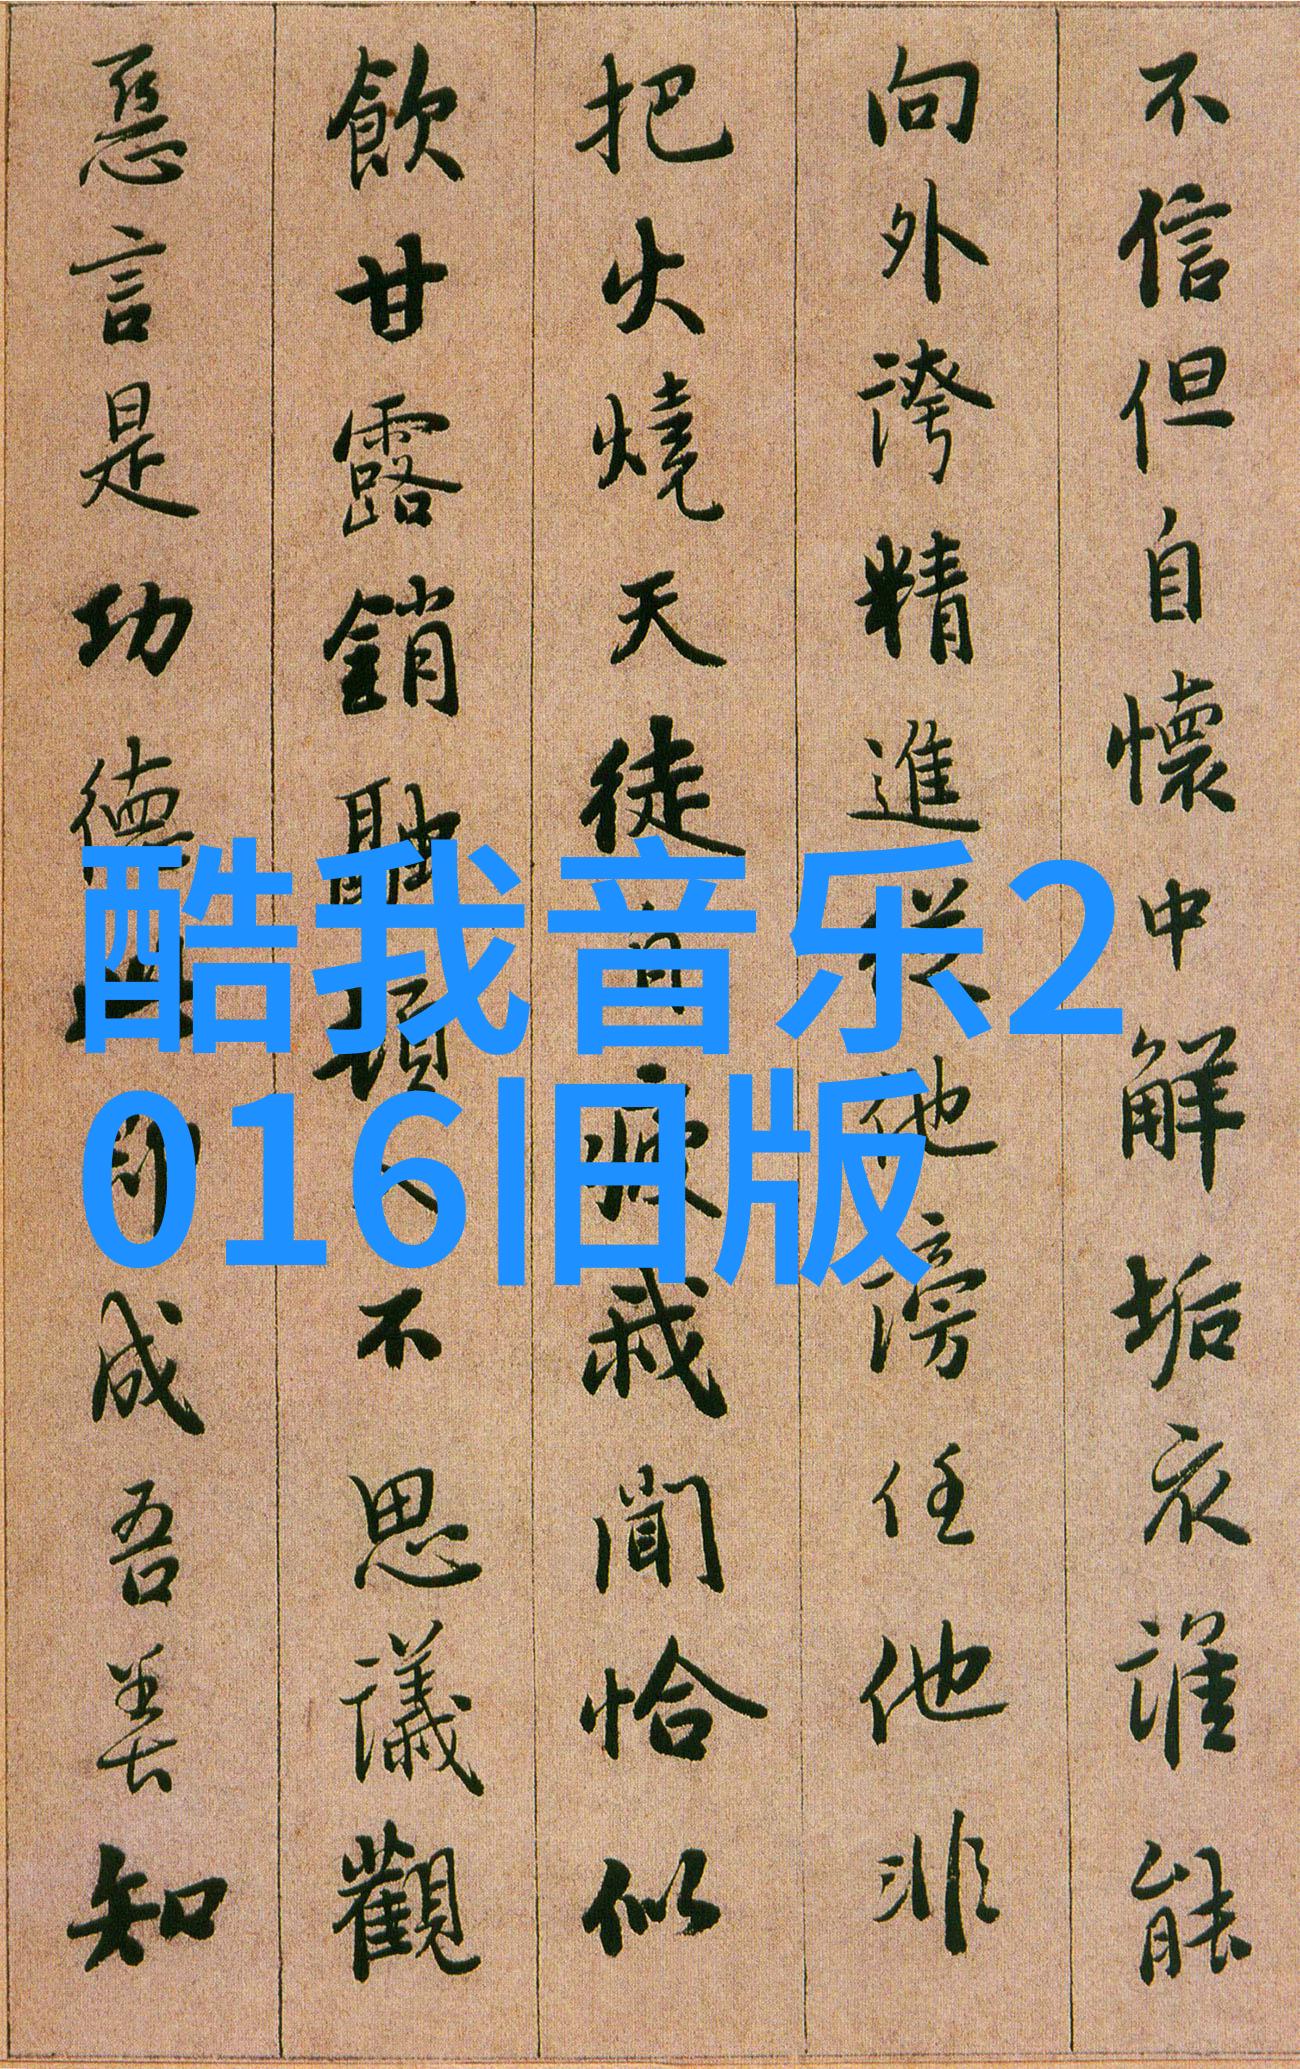 不信但自懷中解垢衣誰能
向外誇精進從他謗任他非
把火燒天徒自疲我聞恰似
飲甘露銷融頓入不思議觀
惡言是功德此即成吾善知
酷我音乐2
016旧版